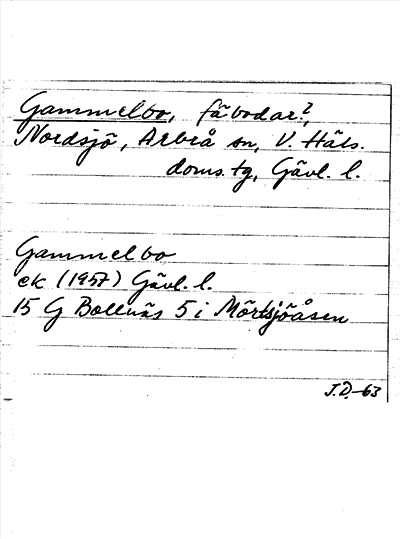 Gammelbo, fäbodar?,
Nordsjö, Arbrå sn, V. Häls.
doms.tg, Gävl. l.
Gammelbo
ek (1957) Gävl. l.
15 G Bollnäs 5 i Mörtsjöåsen
J.D.-63